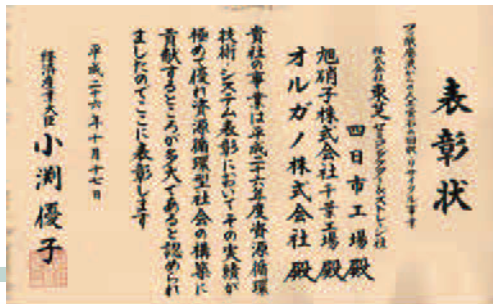 表彰状
株式会社東芝セミコンダクター&ストレージ社
四日市工場殿
旭硝子株式会社千葉工場殿
オルガノ株式会社殿
貴社の事業は平成二十六年度資源循環
技術・システム表彰においてその実績が
極めて優れ資源循環型社会の構築に
貢献するところが多大であると認められ
ましたのでここに表彰します
平成二十六年十月十七日
経済産業大臣 小渕優子